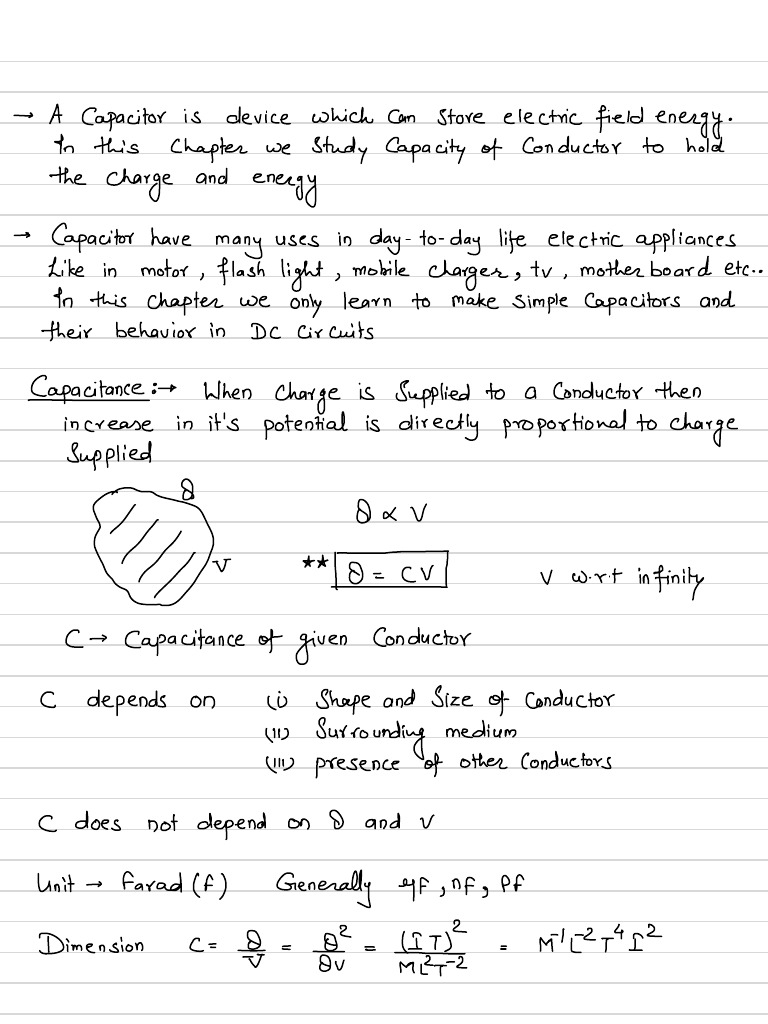 → A Capacitor is device which can store electric field energy.
In this Chapter we Study Capacity of Conductor to hold
the charge and energy
→ Capacitor have many uses in day-to-day life electric appliances
Like in motor, flash light, mobile charger, tv, mother board etc..
In this chapter we only learn to make Simple Capacitors and
their behavior in DC Circuits
Capacitance :→ When charge is Supplied to a Conductor then
increase in it's potential is directly proportional to charge
Supplied
Q
Q ∝ V
V
** Q = CV
V w.r.t infinity
C → Capacitance of given Conductor
C depends on (i) Shape and Size of Conductor
(ii) Surrounding medium
(iii) presence of other Conductors
C does not depend on Q and V
Unit → Farad (f) Generally μf, nf, Pf
Dimension C = Q/V = Q²/QV = (IT)²/ML²T⁻² = M⁻¹L⁻²T⁴I²